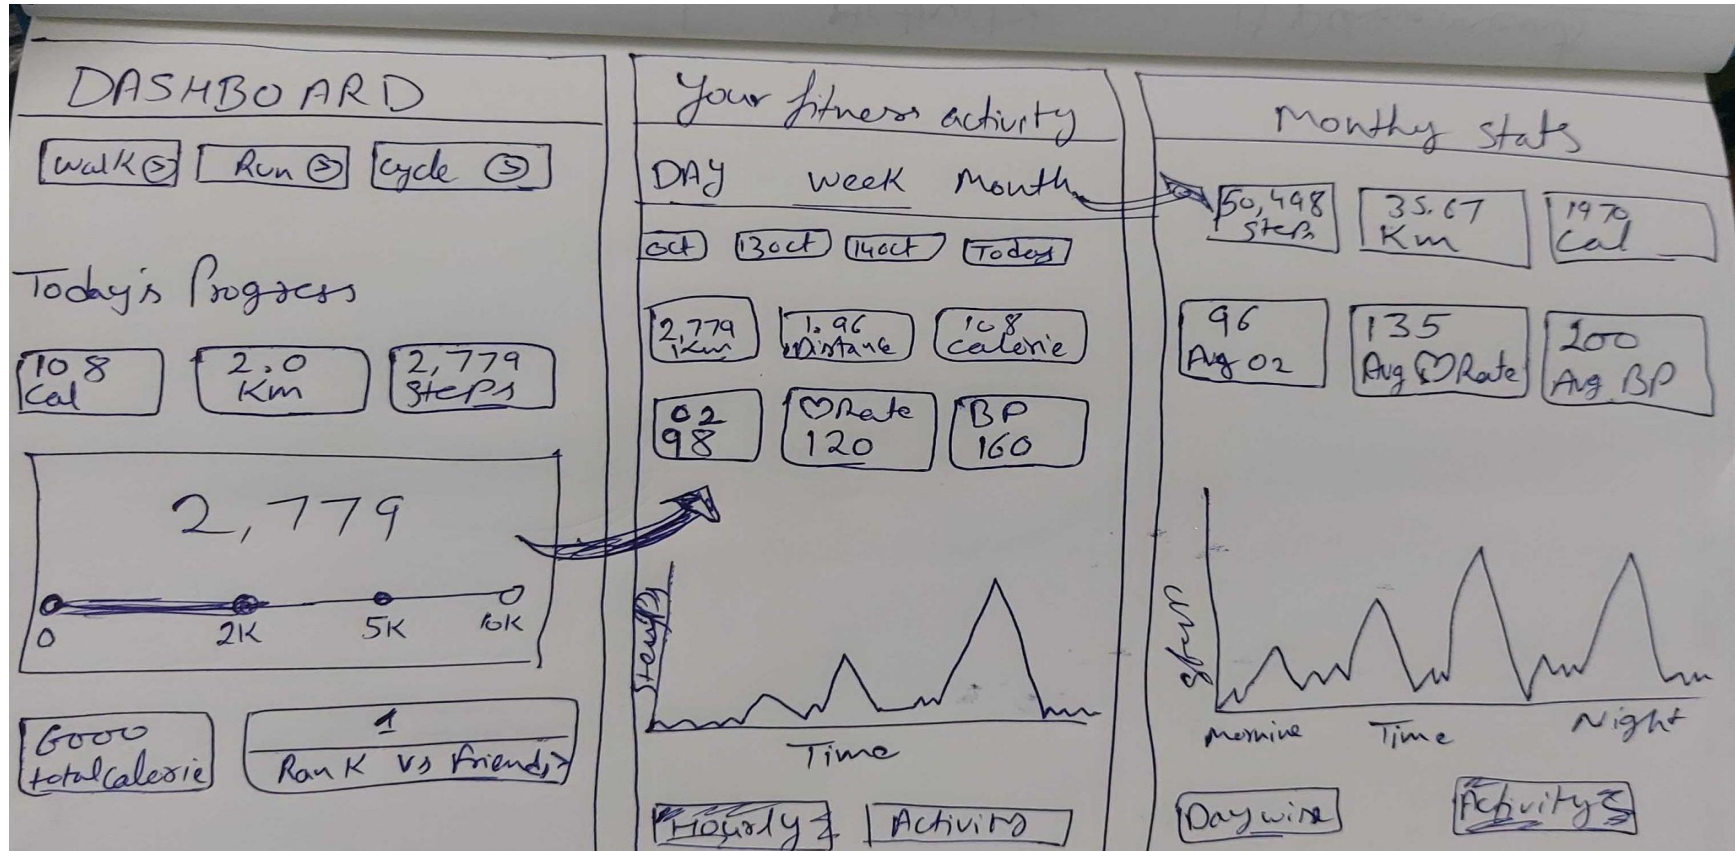 DASHBOARD
Walk
Run
Cycle
Today's Progress
108
Cal
2.0
Km
2,779
Steps
2,779
0 2K 5K 10K
6000
total calorie
1
Rank vs friends>
Your fitness activity
DAY Week Month
Oct 13 Oct 14 Oct Today
2,779
Km
1.96
Distance
108
Calorie
O2
98
♡Rate
120
BP
160
Time
Hourly
Activity
Monthy Stats
50,498
Steps
35.67
Km
1970
Cal
96
Avg O2
135
Avg ♡ Rate
200
Avg BP
Steps
Time
Night
Daywise
Activity